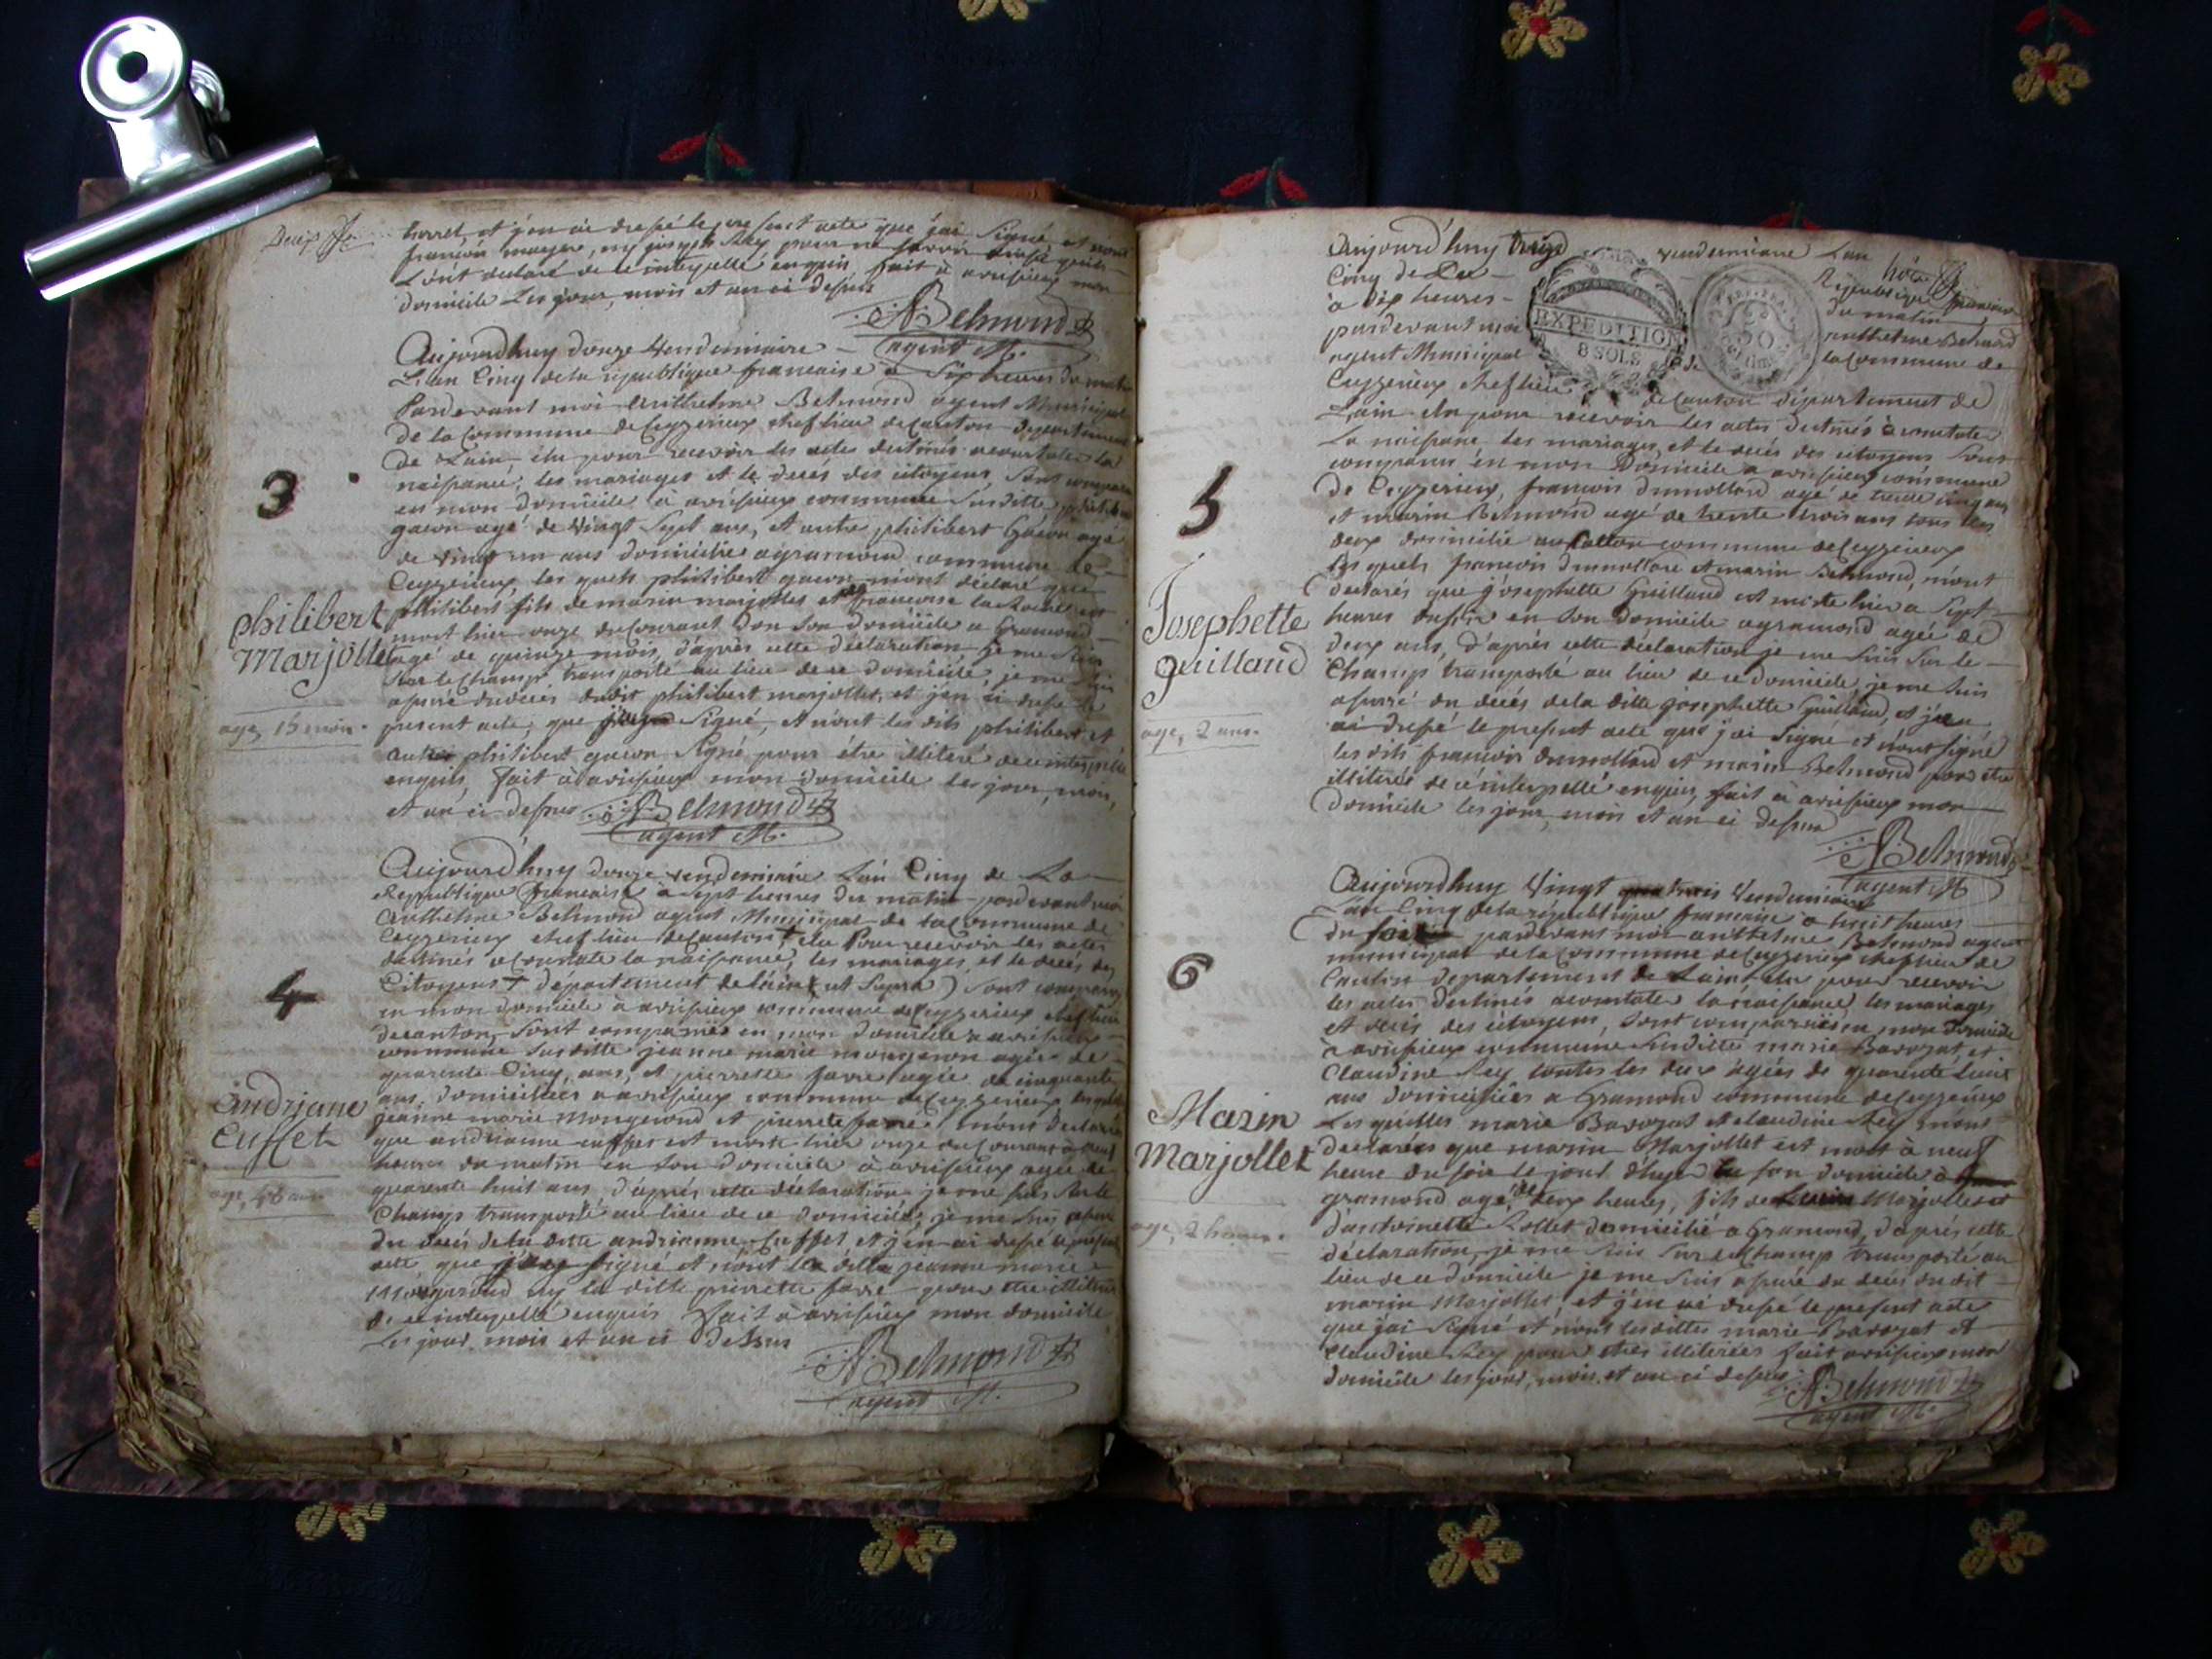 Deux
torret, et j'en ai dressé le present acte que j'ai signé, et
françois mayere, ny joseph Rey pour ne savoir
L'ont declaré de ce interpellé enquis, fait à avrissieux mon
domicile Les jour, mois et an ci dessus
ABelmond
agent M.
Aujourdhuy douze Vendemiaire
L'an Cinq de la republique francaise à Six heures du matin
Pardevant moi Anthelme Belmond agent Municipal
De la Commune de Ceyzerieux chef lieu de Canton departement
De L'ain élu pour recevoir les actes destinés a constater la
naissance, les mariages et le deces des citoyens, sont comparu
en mon domicile à avrissieux commune susditte philibert
gacon agé de vingt sept ans, et autre philibert Gacon agé
de vingt un ans domicilié agramond commune de
Ceyzerieux, les quels philibert gacon m'ont déclaré que
3
philibert
Marjollet
age, 15 mois.
philibert fils de marin marjollet et de francoise laRoche est
mort hier onze du Courant dan son domicile a Gramond
agé de quinze mois, d'après cette déclaration je me suis
sur le Champ transporté au lieu de ce domicile, je me suis
assuré du deces dudit philibert marjollet, et j'en ai dressé le
present acte, que signé, et n'ont les dits philibert et
autre philibert gacon signé pour être illiteré de ce interpellé
enquis, fait à avrissieux mon domicile les jour, mois,
et an ci dessus ABelmond
agent M.
Aujourd'huy douze vendemiaire L'an Cinq de La
Republique francaise à Sept heures du matin pardevant moi
Anthelme Belmond agent Municipal de la Commune de
Ceyzerieux chef lieu de Canton élu Pour recevoir les actes
destinés a Constate la naissance, les mariages, et le decés des
Citoyens département de lain ut supra) sont comparu
en mon domicile à avrissieux commune de Ceyzerieux chef lieu
decanton, sont comparues en mon domicile a avrissieux
commune susditte jeanne marie mongeron agée de
quarente Cinq ans, et pierrette favre agée de cinquante
4
Andrjane
Cuffet
age, 48 ans.
ans, domiciliées a avrissieux commune de Ceyzerieux
jeanne marie Mongerond et pierrete favre m'ont declaré
que andrianne cuffet est morte hier onze du Courant à
heures du matin en son domicile à avrissieux agée de
quarente huit ans, d'aprés cette déclaration je me suis sur le
Champ transporté au lieu de ce domicile, je me suis assuré
du decés de la ditte andrianne Cuffet et j'en ai dressé le present
acte que signé et n'ont les dittes jeanne marie
Mongerond ny la ditte pierrette favre pour être illiteré
de ce interpellé enquis fait à avrissieux mon domicile
Les jour, mois et an ci Dessus
ABelmond
agent M.
Aujourd'huy vendemiaire L'an
Cinq de La Republique francaise
à Dix heures du matin
pardevant moi anthelme Belmond
agent Municipal de la Commune de
EXPEDITION
8 SOLS
Ceyzerieux chef lieu de Canton département de
Lain élu pour recevoir les actes destinés à constater
La naissance les mariages, et le decés des citoyens sont
comparu en mon Domicile a avrissieux commune
de Ceyzerieux, francois Dumollard agé de trente cinq ans
et marin Belmond agé de trente trois ans tous les
deux domicilié commune de Ceyzerieux
les quels francois Dumollard et marin Belmond, m'ont
5
Josephette
guilland
age, 2 ans.
declarés que josephette Guilland est morte hier a Sept
heures du soir en son domicile agramond agée de
Deux ans, d'aprés cette déclaration je me suis sur le
Champ transporté au lieu de ce Domicile, je me suis
assuré du decés de la ditte josephette Guilland, et j'en
ai dressé le present acte que j'ai signé et n'ont signé
les dits francois dumollard et marin Belmond pour être
illiterés de ce interpellé enquis, fait à avrissieux mon
Domicile les jour, mois et an ci dessus
ABelmond
agent M
Aujourdhuy Vingt trois Vendemiaire
L'an Cinq de la république francaise a huit heures
du pardevant moi anthelme Belmond agent
municipal de la Commune de Ceyzerieux chef lieu de
Canton département de Lain, élu pour recevoir
les actes destinés a constater la naissance, les mariages
et decés des citoyens, sont comparues en mon domicile
à avrissieux commune susditte marie Bavozat, et
Claudine Rey toutes les deux agées de quarente huit
ans domiciliées a Gramond commune de Ceyzerieux
6
Marin
Marjollet
age, 2 heures.
Les quelles marie Bavozat et claudine Rey m'ont
declarées que marin Marjollet est mort à neuf
heure du soir le jour dhyer en son domicile à
gramond agé de deux heures, fils de Marjollet et
d'antoinette Rollet domicilié a Gramond, d'aprés cette
declaration, je me suis sur le Champ transporté au
lieu de ce domicile je me suis assuré du decés dudit
marin Marjollet, et j'en ai dressé le present acte
que j'ai signé et n'ont les dittes marie Bavozat et
Claudine Rey pour etres illiterées fait avrissieux mon
domicile les jour, mois et an ci dessus ABelmond
agent M.